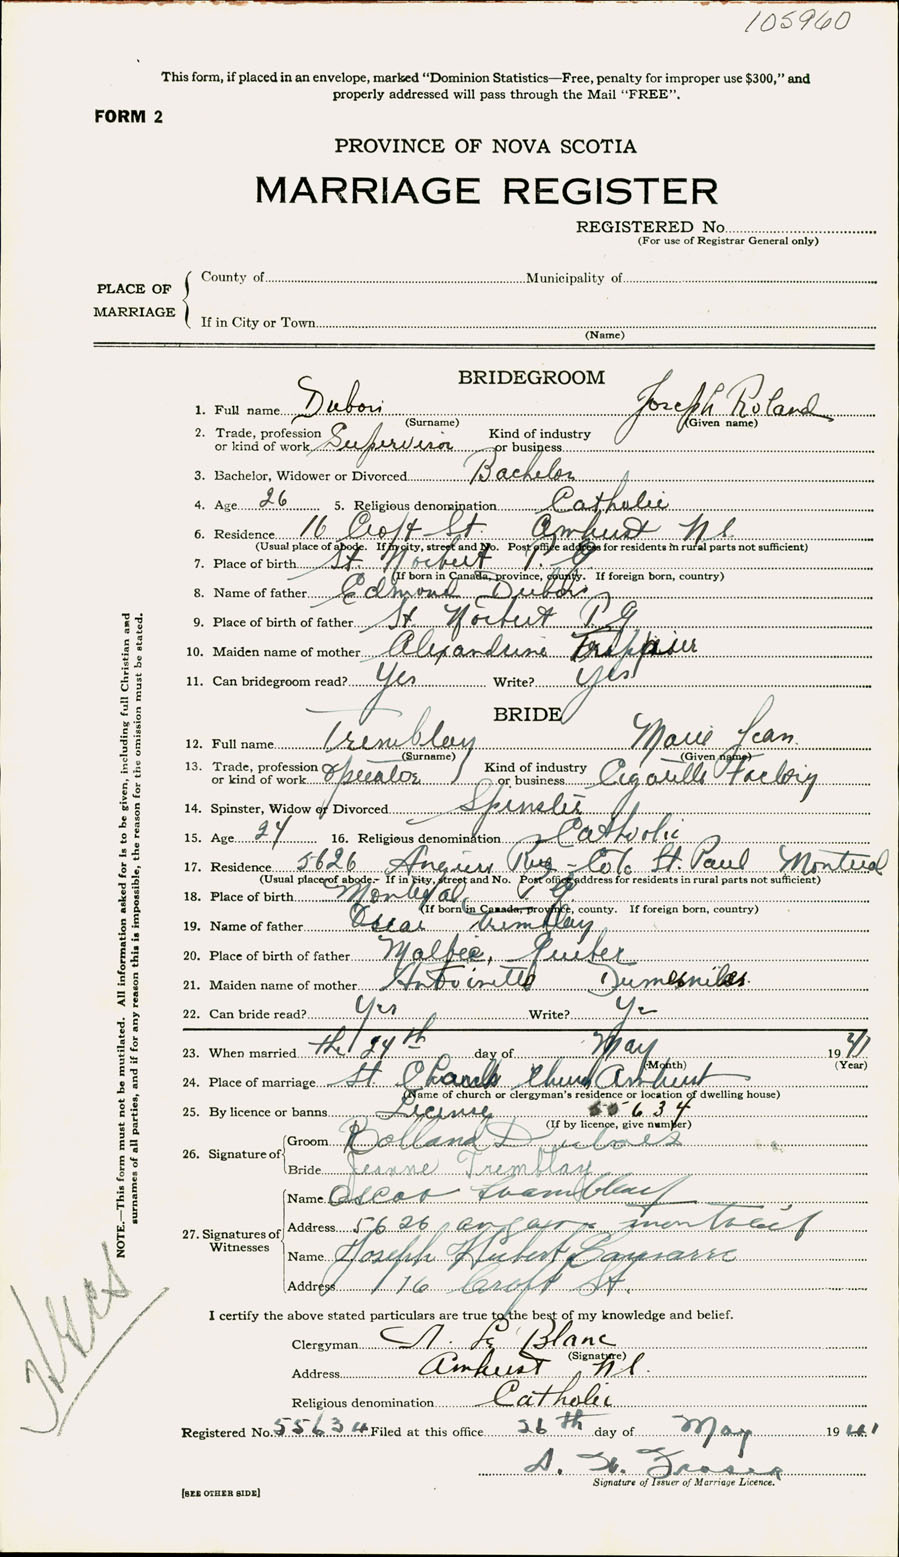 105960
This form, if placed in an envelope, marked "Dominion Statistics—Free, penalty for improper use $300," and
properly addressed will pass through the Mail "FREE".
FORM 2
PROVINCE OF NOVA SCOTIA
MARRIAGE REGISTER
REGISTERED No.
(For use of Registrar General only)
PLACE OF MARRIAGE
County of Municipality of
If in City or Town
(Name)
BRIDEGROOM
1. Full name Dubois Joseph Roland
(Surname) (Given name)
2. Trade, profession or kind of work Supervisor Kind of industry or business
3. Bachelor, Widower or Divorced Bachelor
4. Age 26 5. Religious denomination Catholic
6. Residence 16 Croft St. Amherst N.S.
(Usual place of abode. If in city, street and No. Post office address for residents in rural parts not sufficient)
7. Place of birth St Norbert P. Q
(If born in Canada, province, county. If foreign born, country)
8. Name of father Edmond Dubois
9. Place of birth of father St Norbert P Q
10. Maiden name of mother Alexandrine
11. Can bridegroom read? Yes Write? Yes
BRIDE
12. Full name Tremblay Marie Jean
(Surname) (Given name)
13. Trade, profession or kind of work Operator Kind of industry or business Cigarette Factory
14. Spinster, Widow or Divorced Spinster
15. Age 24 16. Religious denomination Catholic
17. Residence 5626 Angers Rue - Cote St. Paul Montreal
(Usual place of abode.- If in city, street and No. Post office address for residents in rural parts not sufficient)
18. Place of birth Montreal P. Q
(If born in Canada, province, county. If foreign born, country)
19. Name of father Oscar Tremblay
20. Place of birth of father Malbeie, Quebec
21. Maiden name of mother Antoinette
22. Can bride read? Yes Write? Yes
23. When married the 24th day of May 1941
(Month) (Year)
24. Place of marriage St Charles Church Amherst
(Name of church or clergyman's residence or location of dwelling house)
25. By licence or banns License 55634
(If by licence, give number)
26. Signature of
Groom Rolland Dubois
Bride Jeanne Tremblay
27. Signatures of Witnesses
Name Oscar Tremblay
Address 5626 Montreal
Name Joseph Hubert
Address 16 Croft St.
I certify the above stated particulars are true to the best of my knowledge and belief.
Clergyman A. Le Blanc
(Signature)
Address Amherst N.S.
Religious denomination Catholic
Registered No. 55634 Filed at this office 26th day of May 1941
Signature of Issuer of Marriage Licence.
[SEE OTHER SIDE]
NOTE.—This form must not be mutilated. All information asked for is to be given, including full Christian and
surnames of all parties, and if for any reason this is impossible, the reason for the omission must be stated.